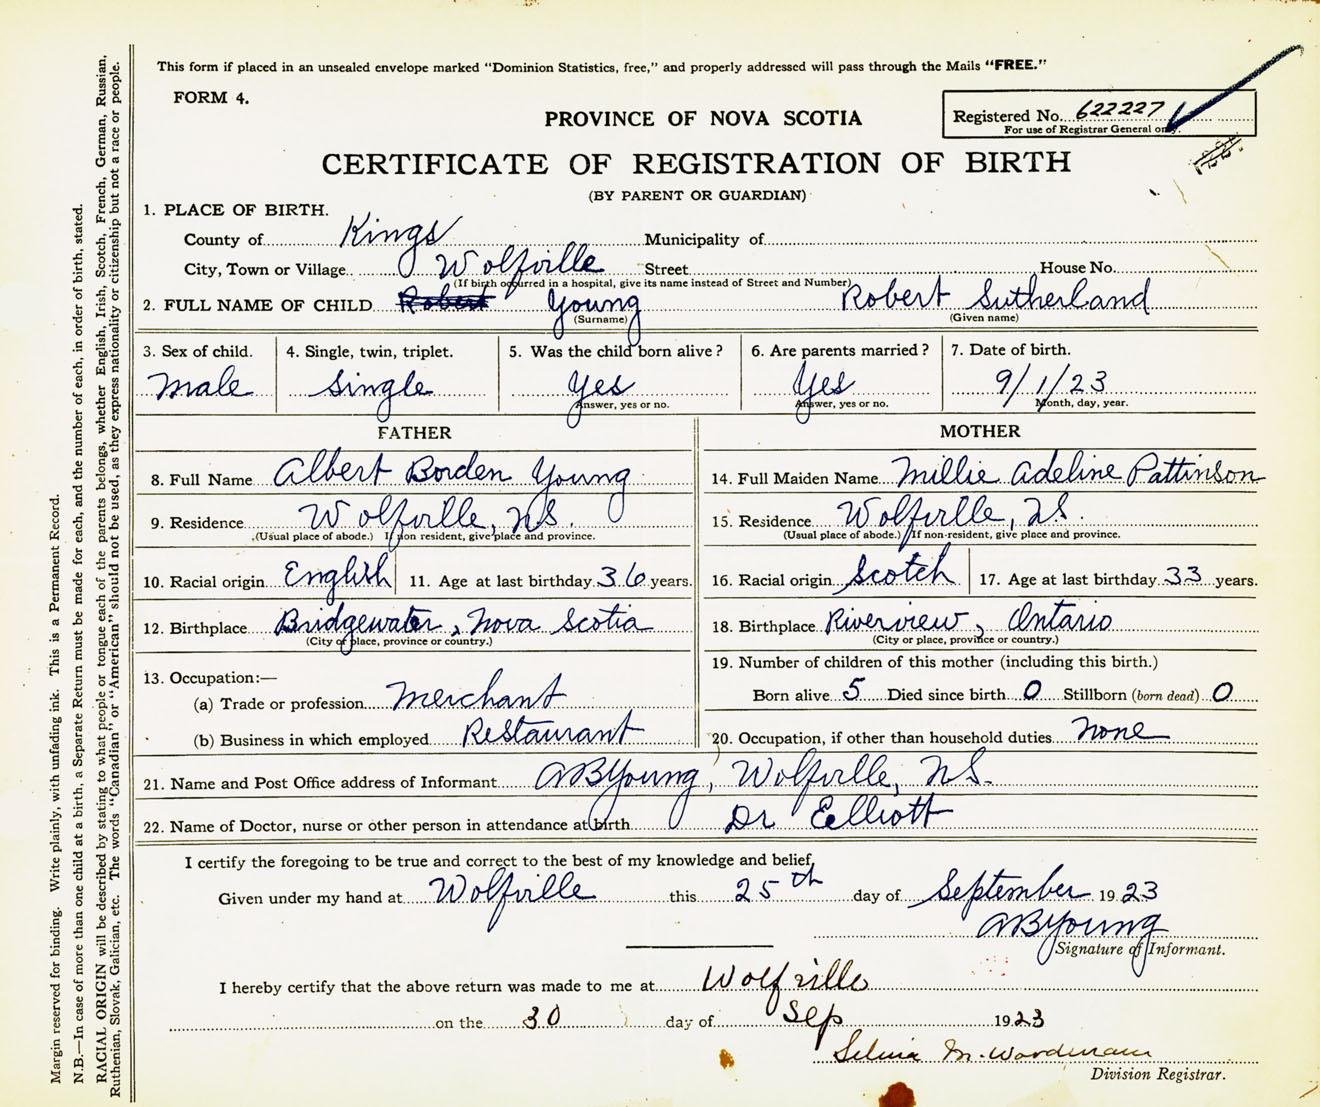 This form if placed in an unsealed envelope marked "Dominion Statistics, free," and properly addressed will pass through the Mails "FREE."
FORM 4.
PROVINCE OF NOVA SCOTIA
Registered No. 622227
For use of Registrar General only.
CERTIFICATE OF REGISTRATION OF BIRTH
(BY PARENT OR GUARDIAN)
1. PLACE OF BIRTH.
County of Kings Municipality of
City, Town or Village Wolfville Street House No.
(If birth occurred in a hospital, give its name instead of Street and Number)
2. FULL NAME OF CHILD Robert Young Robert Sutherland
(Surname) (Given name)
3. Sex of child. 4. Single, twin, triplet. 5. Was the child born alive? 6. Are parents married? 7. Date of birth.
Male Single Yes Yes 9/1/23
Answer, yes or no. Answer, yes or no. Month, day, year.
FATHER MOTHER
8. Full Name Albert Borden Young 14. Full Maiden Name Millie Adeline Pattinson
9. Residence Wolfville, N.S. 15. Residence Wolfville, N.S.
(Usual place of abode.) If non resident, give place and province. (Usual place of abode.) If non-resident, give place and province.
10. Racial origin English 11. Age at last birthday 36 years. 16. Racial origin Scotch 17. Age at last birthday 33 years.
12. Birthplace Bridgewater, Nova Scotia 18. Birthplace Riverview, Ontario
(City or place, province or country.) (City or place, province or country.)
13. Occupation:— 19. Number of children of this mother (including this birth.)
(a) Trade or profession Merchant Born alive 5 Died since birth 0 Stillborn (born dead) 0
(b) Business in which employed Restaurant 20. Occupation, if other than household duties None
21. Name and Post Office address of Informant ABYoung, Wolfville, N.S.
22. Name of Doctor, nurse or other person in attendance at birth Dr Eelliott
I certify the foregoing to be true and correct to the best of my knowledge and belief,
Given under my hand at Wolfville this 25th day of September 1923
ABYoung
Signature of Informant.
I hereby certify that the above return was made to me at Wolfville
on the 30 day of Sep 1923
M.
Division Registrar.
Margin reserved for binding. Write plainly, with unfading ink. This is a Permanent Record.
N.B.—In case of more than one child at a birth, a Separate Return must be made for each, and the number of each, in order of birth, stated.
RACIAL ORIGIN will be described by stating to what people or tongue each of the parents belongs, whether English, Irish, Scotch, French, German, Russian,
Ruthenian, Slovak, Galician, etc. The words "Canadian" or "American" should not be used, as they express nationality or citizenship but not a race or people.